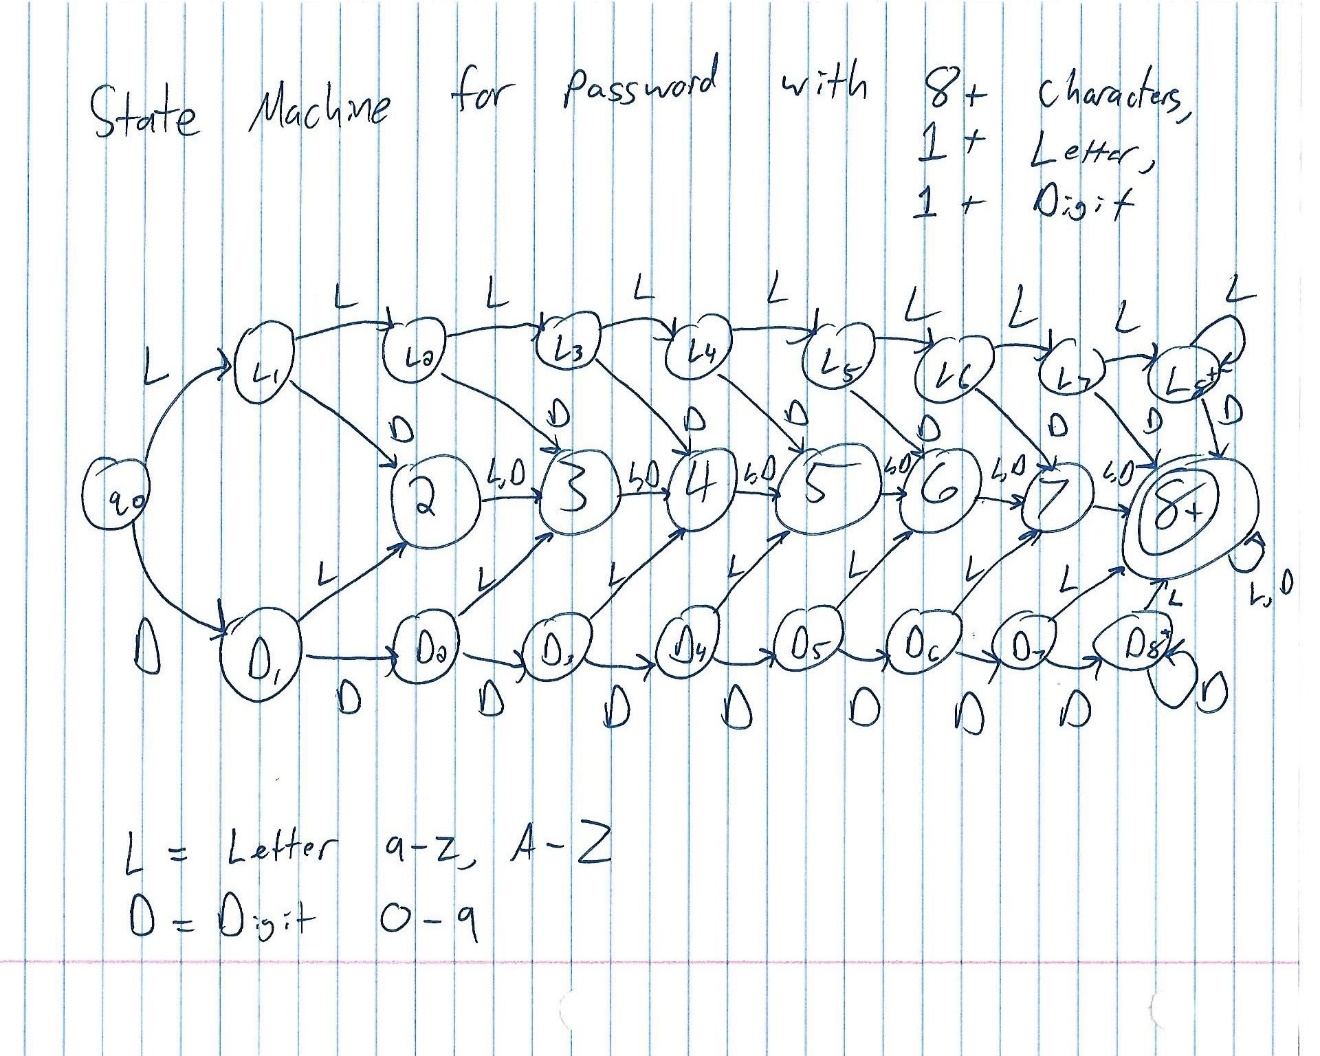 State Machine for Password with 8+ Characters,
1+ Letter,
1+ Digit
L L L L L L L L
L L1 L2 L3 L4 L5 L6 L7 L8+
D D D D D D D D
q0 2 L,D 3 L,D 4 L,D 5 L,D 6 L,D 7 L,D 8+
L L L L L L L L L,D
D D1 D2 D3 D4 D5 D6 D7 D8+ D
D D D D D D D
L = Letter a-z, A-Z
D = Digit 0-9